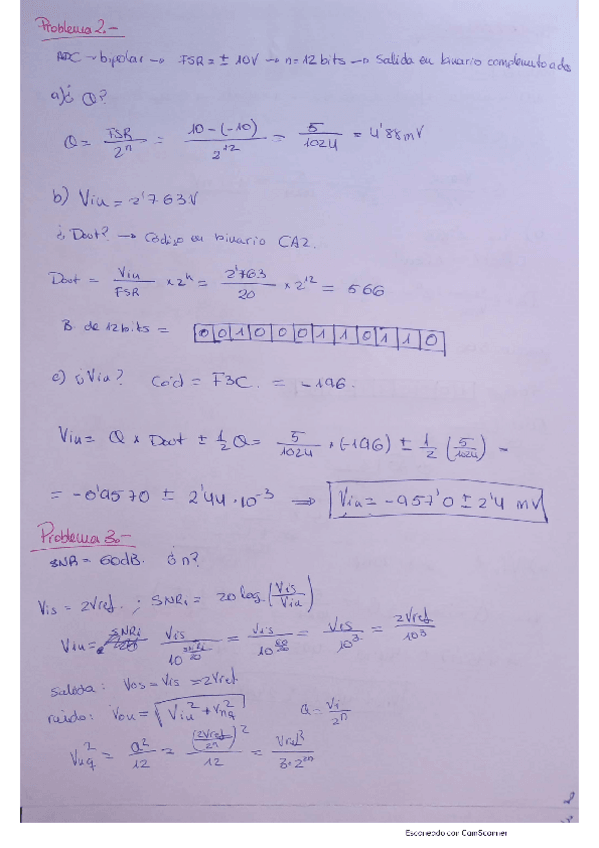 Problema 2.-
ADC → bipolar → FSR = ± 10V → n = 12 bits → Salida en binario complemento a dos
a) ¿ Q?
Q = FSR / 2^n = 10-(-10) / 2^12 = 5 / 1024 = 4'88 mV
b) Vin = 2'763V
¿ Dout? → Código en binario CA2.
Dout = Vin / FSR × 2^n = 2'763 / 20 × 2^12 = 566
B de 12 bits = 0 0 1 0 0 0 1 1 0 1 1 0
c) ¿Vin? Cód = F3C. = -196.
Vin = Q × Dout ± 1/2 Q = 5/1024 × (-196) ± 1/2 (5/1024) -
= -0'9570 ± 2'44·10^-3 ⇒ Vin = -957'0 ± 2'4 mV
Problema 3.-
SNR = 60dB. ¿ n?
Vis = 2Vref. ; SNRi = 20 log (Vis/Vin)
Vin = Vis / 10^(SNRi/20) = Vis / 10^(60/20) = Vis / 10^3 = 2Vref / 10^3
Salida: Vos = Vis = 2Vref
ruido: Von = √(Vin^2 + Vnq^2) Q = Vi / 2^n
Vnq^2 = Q^2 / 12 = (2Vref / 2^n)^2 / 12 = Vref^2 / 3·2^2n
2
Escaneado con CamScanner